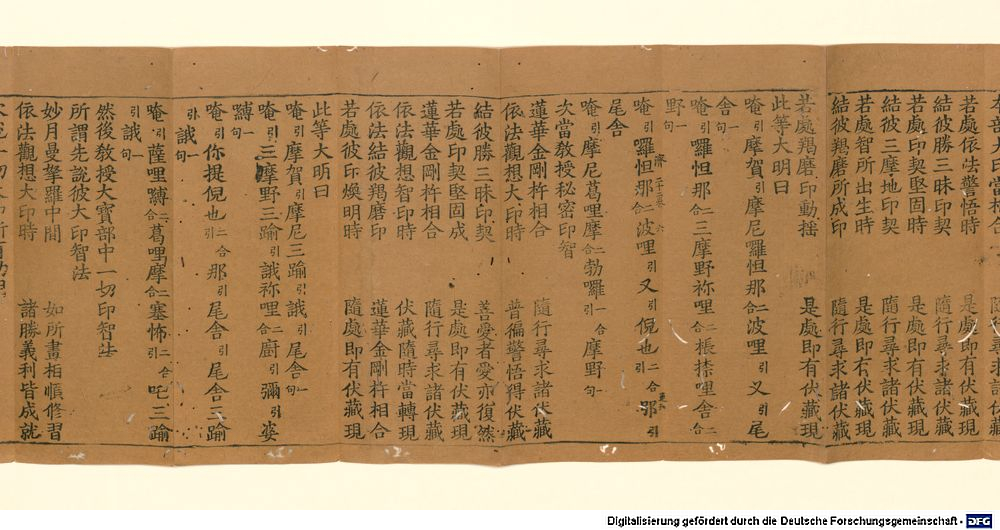 若處依法警悟時　隨行尋求諸伏藏
結彼勝三昧印契　隨行尋求諸伏藏
若處印契堅固時　是處即有伏藏現
結彼三摩地印契　隨行尋求諸伏藏
若處智所出生時　是處即有伏藏現
結彼羯磨所成印　隨行尋求諸伏藏
若處羯磨印動搖　是處即有伏藏現
此等大明曰
唵引摩賀引摩尼羅怛那二合波哩引又引尾
舍一句
唵引羅怛那二合三摩野祢哩二合枨捺哩舍二合
野一句
唵引囉怛那二合波哩引又引倪也二合引那引
尾舍
唵引摩尼葛哩摩二合勃囉二合摩野句
次當教授秘密印智
蓮華金剛杵相合　隨行尋求諸伏藏
依法觀想大印時　普徧警悟得伏藏
結彼勝三昧印契　善愛者愛亦復然
若處印契堅固成　是處即有伏藏現
蓮華金剛杵相合　隨行尋求諸伏藏
依法觀想智印時　伏藏隨時當轉現
依法結彼羯磨印　蓮華金剛杵相合
若處彼印煥明時　隨處即有伏藏現
此等大明曰
唵引摩賀引摩尼三踰引誐引尾舍一句
唵引三摩野三踰引誐祢哩二合廚引彌引婆
嚩一句
唵引你提倪也二合引那引尾舍引尾舍三踰
引誐一句
唵引薩哩嚩二合葛哩摩二合塞怖二合引吒三踰
引誐一句
然後教授大寶部中一切印智法
所謂先說彼大印智法
妙月曼拏羅中間　如所畫相順修習
依法觀想大印時　諸勝義利皆成就
Digitalisierung gefördert durch die Deutsche Forschungsgemeinschaft - DFG